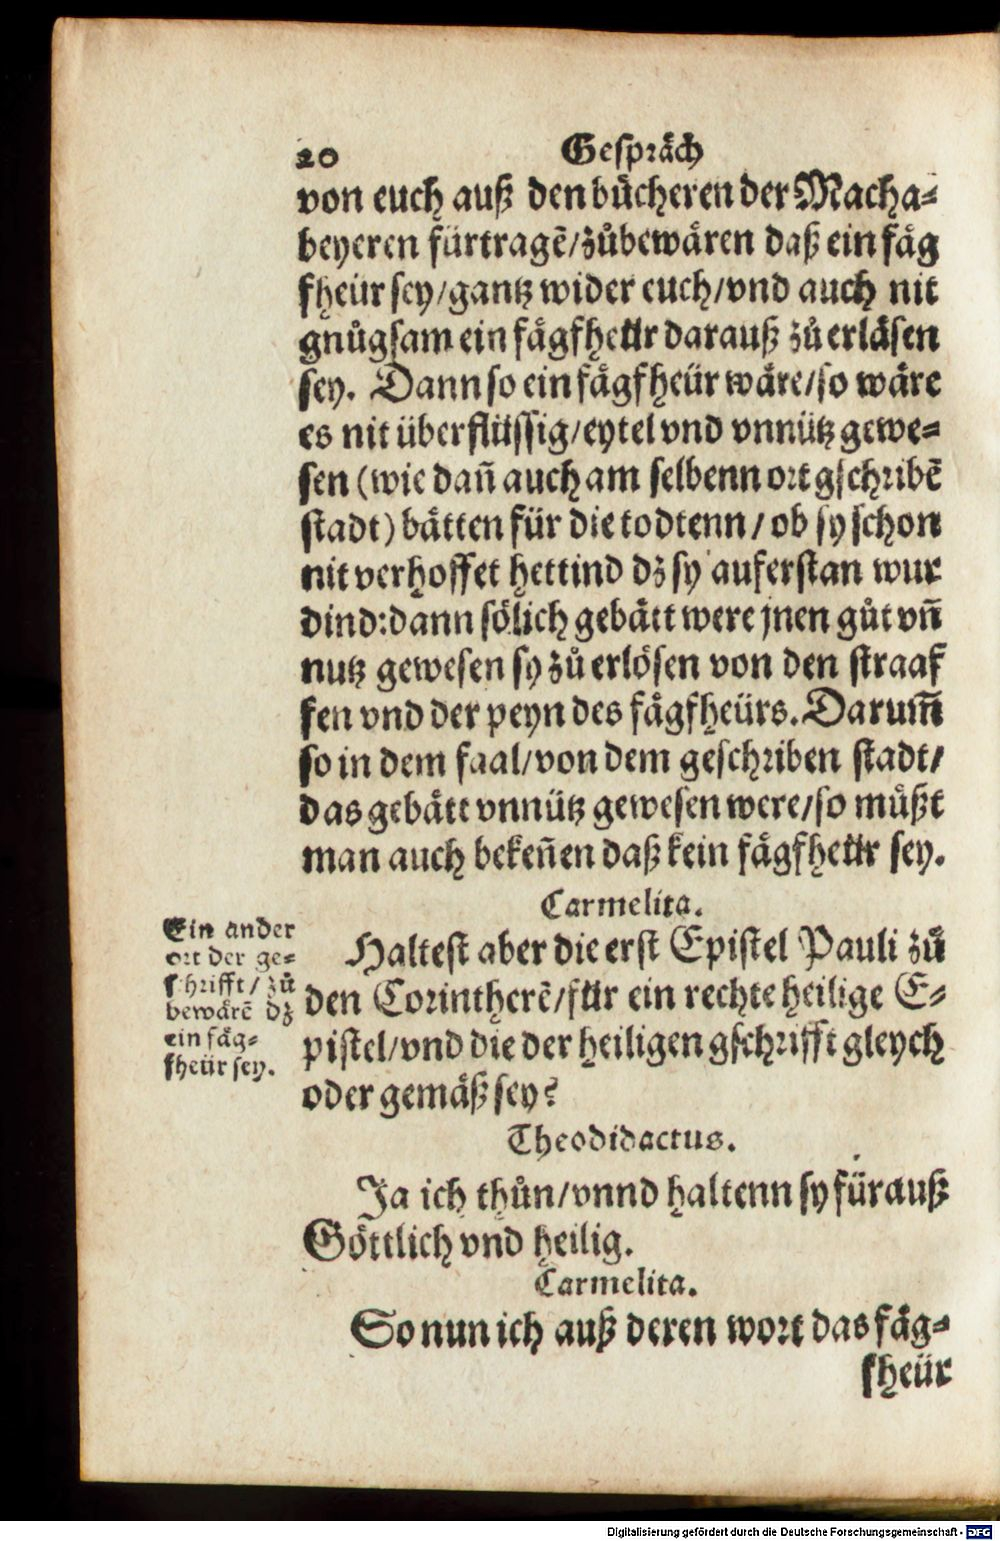 20 Gespräch
von euch auß den buͤcheren der Macha⸗
beyeren fürtragē/zuͦbewaͤren daß ein faͤg
fheür sey/gantz wider euch/vnd auch nit
gnuͦgsam ein faͤgfheür darauß zuͦ erlaͤsen
sey. Dann so ein faͤgfheür waͤre/so waͤre
es nit überflüssig/eytel vnd vnnütz gewe⸗
sen (wie dañ auch am selbenn ort gschribē
stadt) baͤtten für die todtenn/ ob sy schon
nit verhoffet hettind dz sy auferstan wur
dind:dann soͤlich gebaͤtt were jnen guͦt vñ
nutz gewesen sy zuͦ erloͤsen von den straaf
fen vnd der peyn des faͤgfheürs. Darum̃
so in dem faal/von dem geschriben stadt/
das gebaͤtt vnnütz gewesen were/so muͤßt
man auch bekeñen daß kein faͤgfheür sey.
Carmelita.
Ein ander
ort der ge⸗
schrifft/ zuͦ
bewaͤrē dz
ein faͤg⸗
fheür sey.
Haltest aber die erst Epistel Pauli zuͦ
den Corintherē/für ein rechte heilige E⸗
pistel/vnd die der heiligen gschrifft gleych
oder gemaͤß sey?
Theodidactus.
Ja ich thuͦn/vnnd haltenn sy fürauß
Goͤttlich vnd heilig.
Carmelita.
So nun ich auß deren wort das faͤg⸗
fheür
Digitalisierung gefördert durch die Deutsche Forschungsgemeinschaft - DFG